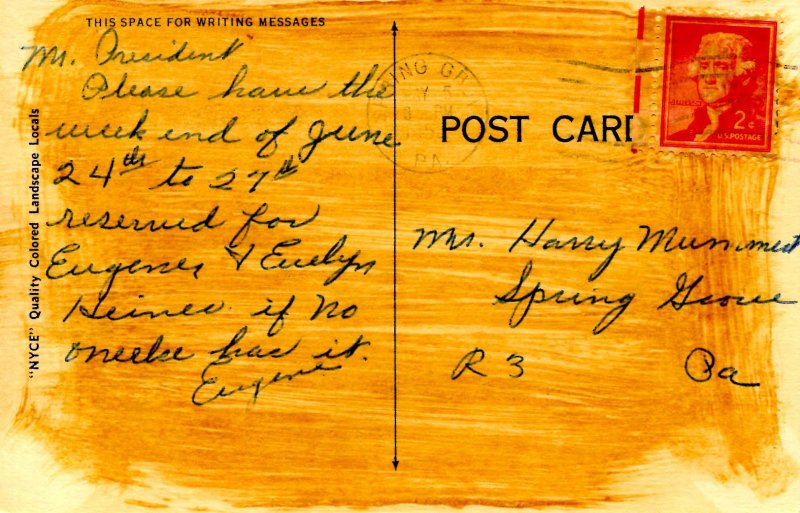 THIS SPACE FOR WRITING MESSAGES
Mr. President
Please have the
week end of June
24th to 27th
reserved for
Eugene & Evelyn
if no
one else has it.
Eugene
"NYCE" Quality Colored Landscape Locals
POST CARD
PA.
2¢
U.S. POSTAGE
Mr. Harry Mummert
Spring Grove
R 3 Pa